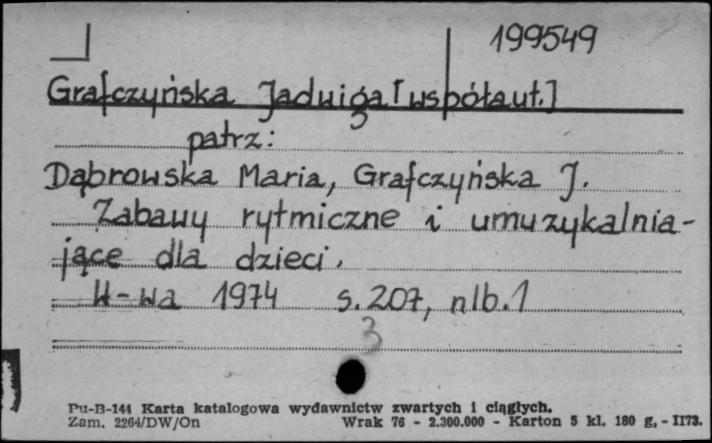 199549
Grafczyńska Jadwiga [współaut.]
patrz:
Dąbrowska Maria, Grafczyńska J.
Zabawy rytmiczne i umuzykalnia-
jące dla dzieci.
W-wa 1974 s. 207, nlb. 1
3
Pu-B-144 Karta katalogowa wydawnictw zwartych i ciągłych.
Zam. 2264/DW/On Wrak 76 - 2.300.000 - Karton 5 kl. 180 g, - II73.